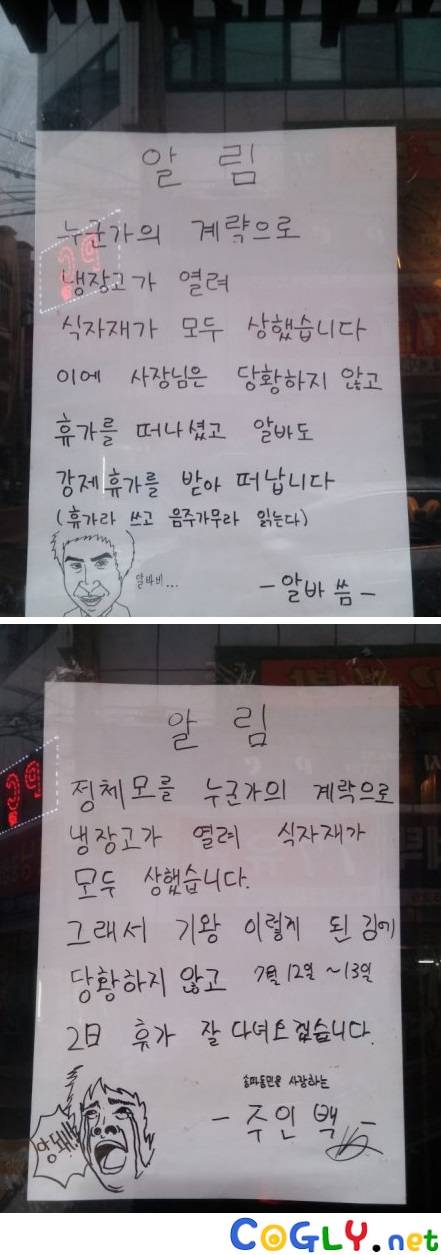 알 림
누군가의 계략으로
냉장고가 열려
식자재가 모두 상했습니다
이에 사장님은 당황하지 않고
휴가를 떠나셨고 알바도
강제휴가를 받아 떠납니다
(휴가라 쓰고 음주가무라 읽는다)
알바비...
-알바 씀-
알 림
정체모를 누군가의 계략으로
냉장고가 열려 식자재가
모두 상했습니다.
그래서 기왕 이렇게 된 김에
당황하지 않고 7월 12일 ~13일
2日 휴가 잘 다녀오겠습니다.
송파동민을 사랑하는
- 주인 백 -
안돼!!!
COGLY.net